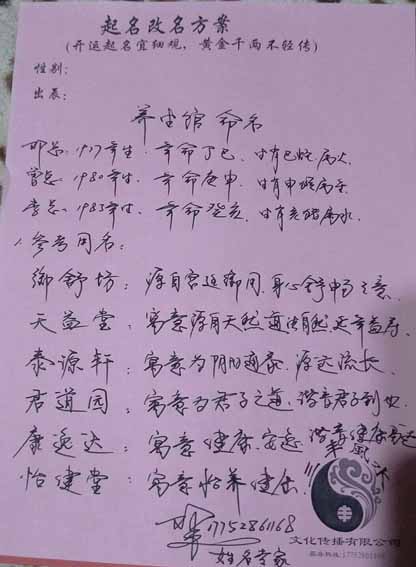 起名改名方案
(开运起名宜细观，黄金千两不轻传)
性别：
出辰：
养生馆 命名
邓总：1977年生．年命丁巳．肖巳蛇．属火
曾总：1980年生．年命庚申．肖申猴属
李总：1983年生．年命癸亥．肖亥猪属水
参考用名：
御舒坊：源自宫廷御用．身心舒畅之意．
天益堂：寓意源自天然 道法自然 延年益寿．
泰源轩：寓意为阴阳通泰．源远流长．
君道园：寓意为君子之道，谐音君子到也
康逸达：寓意健康．安逸．谐音健康
怡健堂：寓意怡养健康．
17752861168
文化传播有限公司
姓名专家